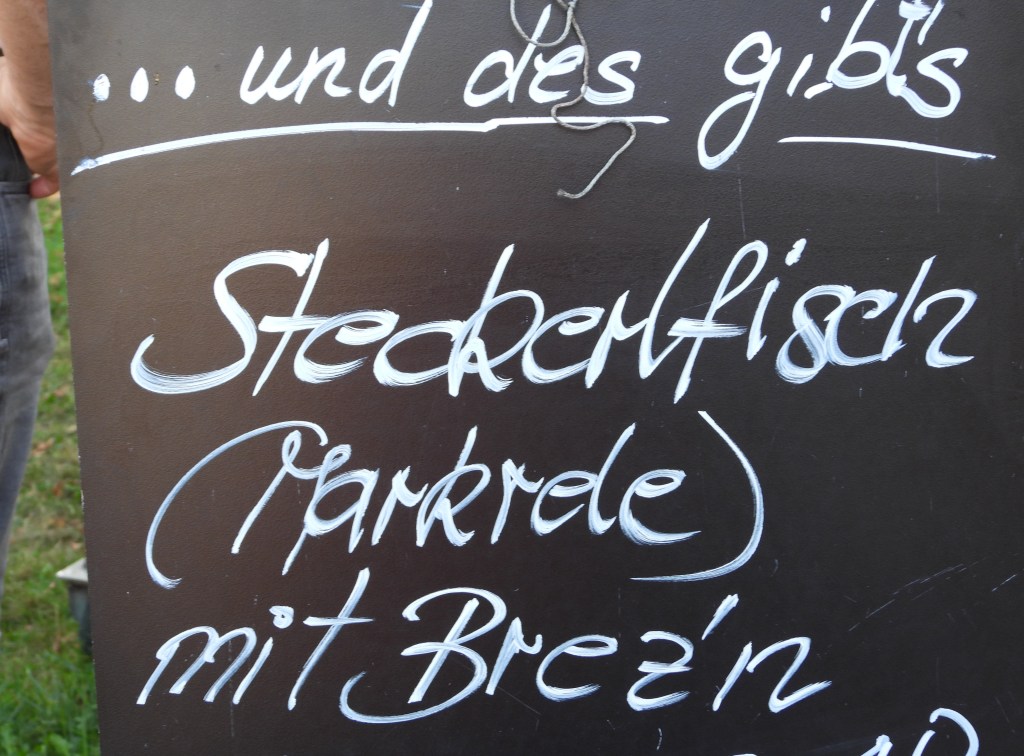 ... und des gibt's
Steckerlfisch
(Markrele)
mit Brez'n